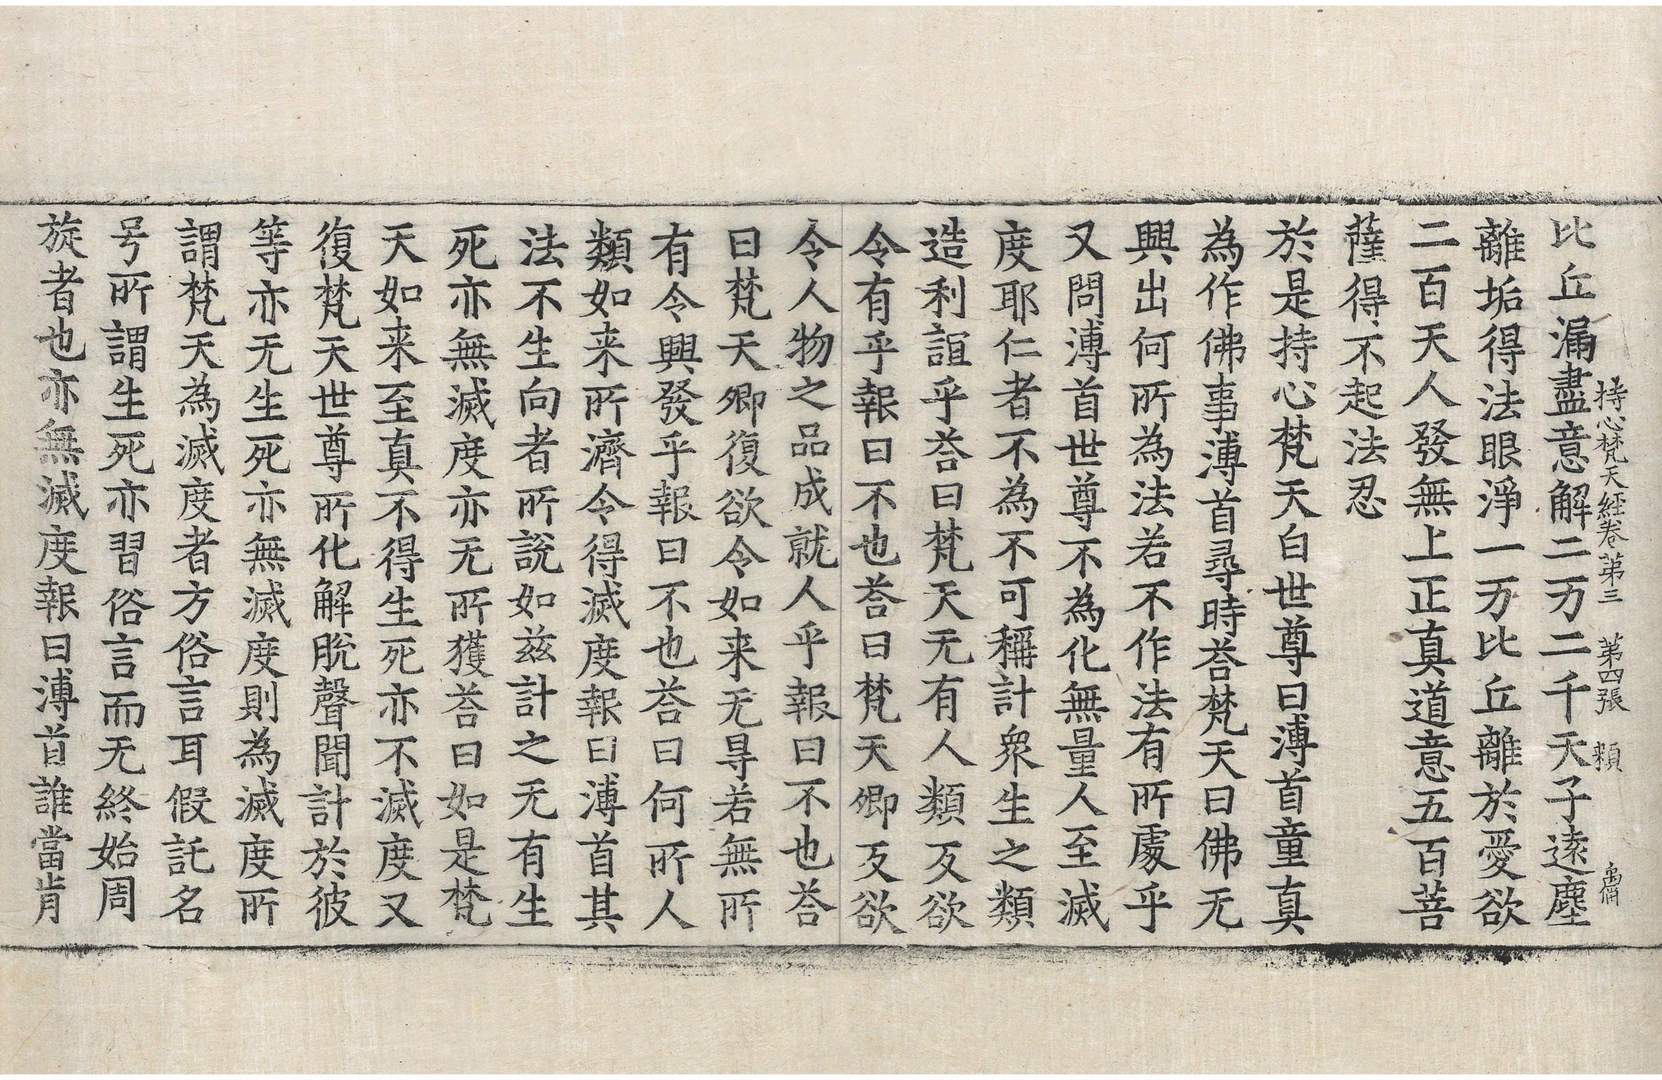 持心梵天經卷第三 第四張 頼
比丘漏盡意解二万二千天子遠塵
離垢得法眼淨一万比丘離於愛欲
二百天人發無上正真道意五百菩
薩得不起法忍
於是持心梵天白世尊曰溥首童真
為作佛事溥首尋時荅梵天曰佛无
興出何所為法若不作法有所處乎
又問溥首世尊不為化無量人至滅
度耶仁者不為不可稱計衆生之類
造利誼乎荅曰梵天无有人類反欲
令有乎報曰不也荅曰梵天卿反欲
令人物之品成就人乎報曰不也荅
曰梵天卿復欲令如来无㝵若無所
有令興發乎報曰不也荅曰何所人
類如来所濟令得滅度報曰溥首其
法不生向者所說如兹計之无有生
死亦無滅度亦无所獲荅曰如是梵
天如来至真不得生死亦不滅度又
復梵天世尊所化解脫聲聞計於彼
等亦无生死亦無滅度則為滅度所
謂梵天為滅度者方俗言耳假託名
号所謂生死亦習俗言而无終始周
旋者也亦無滅度報曰溥首誰當肯